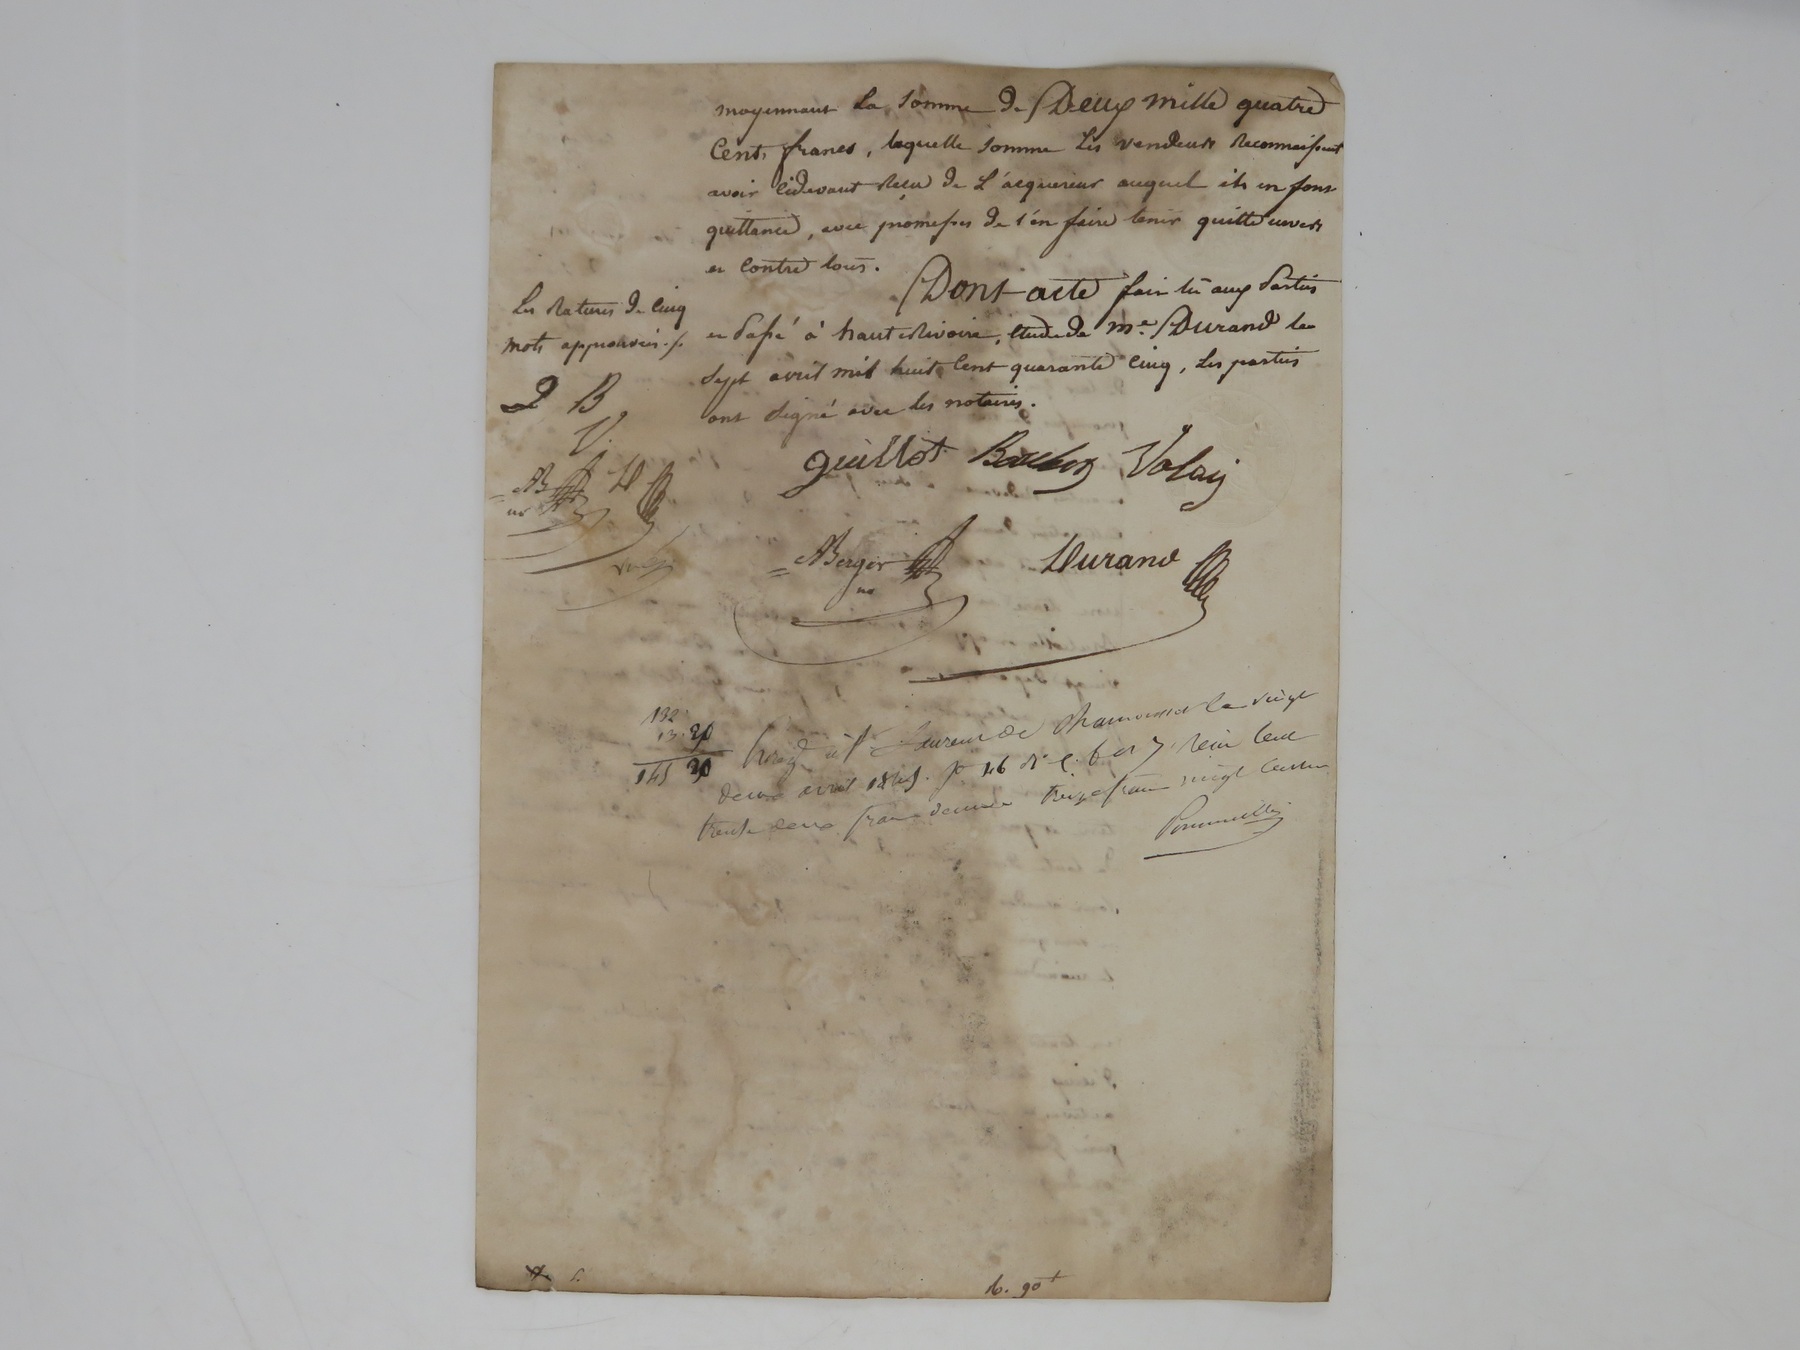 moyennant la somme de Deux mille quatre
Cents francs, laquelle somme les vendeurs reconnaissent
avoir cidevant reçu de l'acquereur auquel ils en font
quittance, avec promesses de l'en faire tenir quitte envers
et contre tous.
Dont acte fait lu aux Parties
et Passé à haut Rivoire, etude de Me. Durand le
sept avril mil huit cent quarante cinq, les parties
ont signé avec les notaires.
Les Ratures de Cinq
mots approuvées ./.
B
V.
AB
no
D
guillot Bouchon Valay
ABerger
no
Durand
132
13.20
145 20
à St Laurent de Chamousset le vingt
deux avril 1845. fo 46 Ro c. 6 et 7 reçu cent
trente deux francs decime treize francs vingt centimes
16. 90